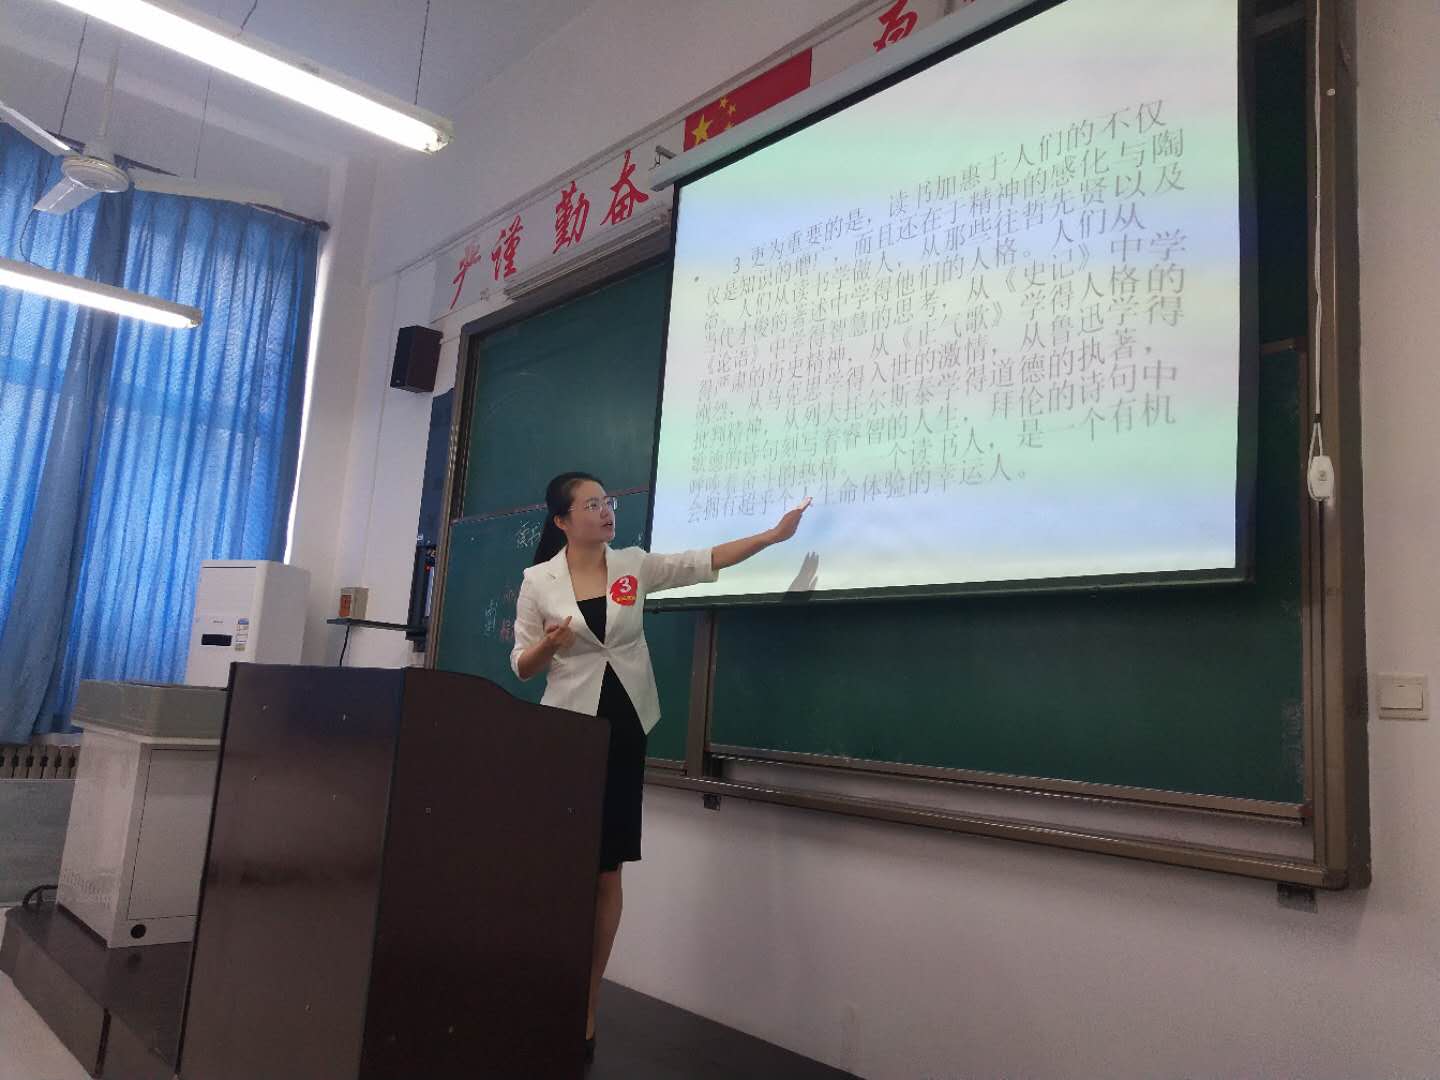 严谨 勤奋
• 3 更为重要的是，读书加惠于人们的不仅
仅是知识的增广，而且还在于精神的感化与陶
冶。人们从读书学做人，从那些往哲先贤以及
当代才俊的著述中学得他们的人格。人们从
《论语》中学得智慧的思考，从《史记》中学
得严肃的历史精神，从《正气歌》学得人格的
刚烈，从马克思学得入世的激情，从鲁迅学得
批判精神，从列夫托尔斯泰学得道德的执著，
歌德的诗句刻写着睿智的人生，拜伦的诗句中
呼唤着奋斗的热情。一个读书人，是一个有机
会拥有超乎个人生命体验的幸运人。
读书
3